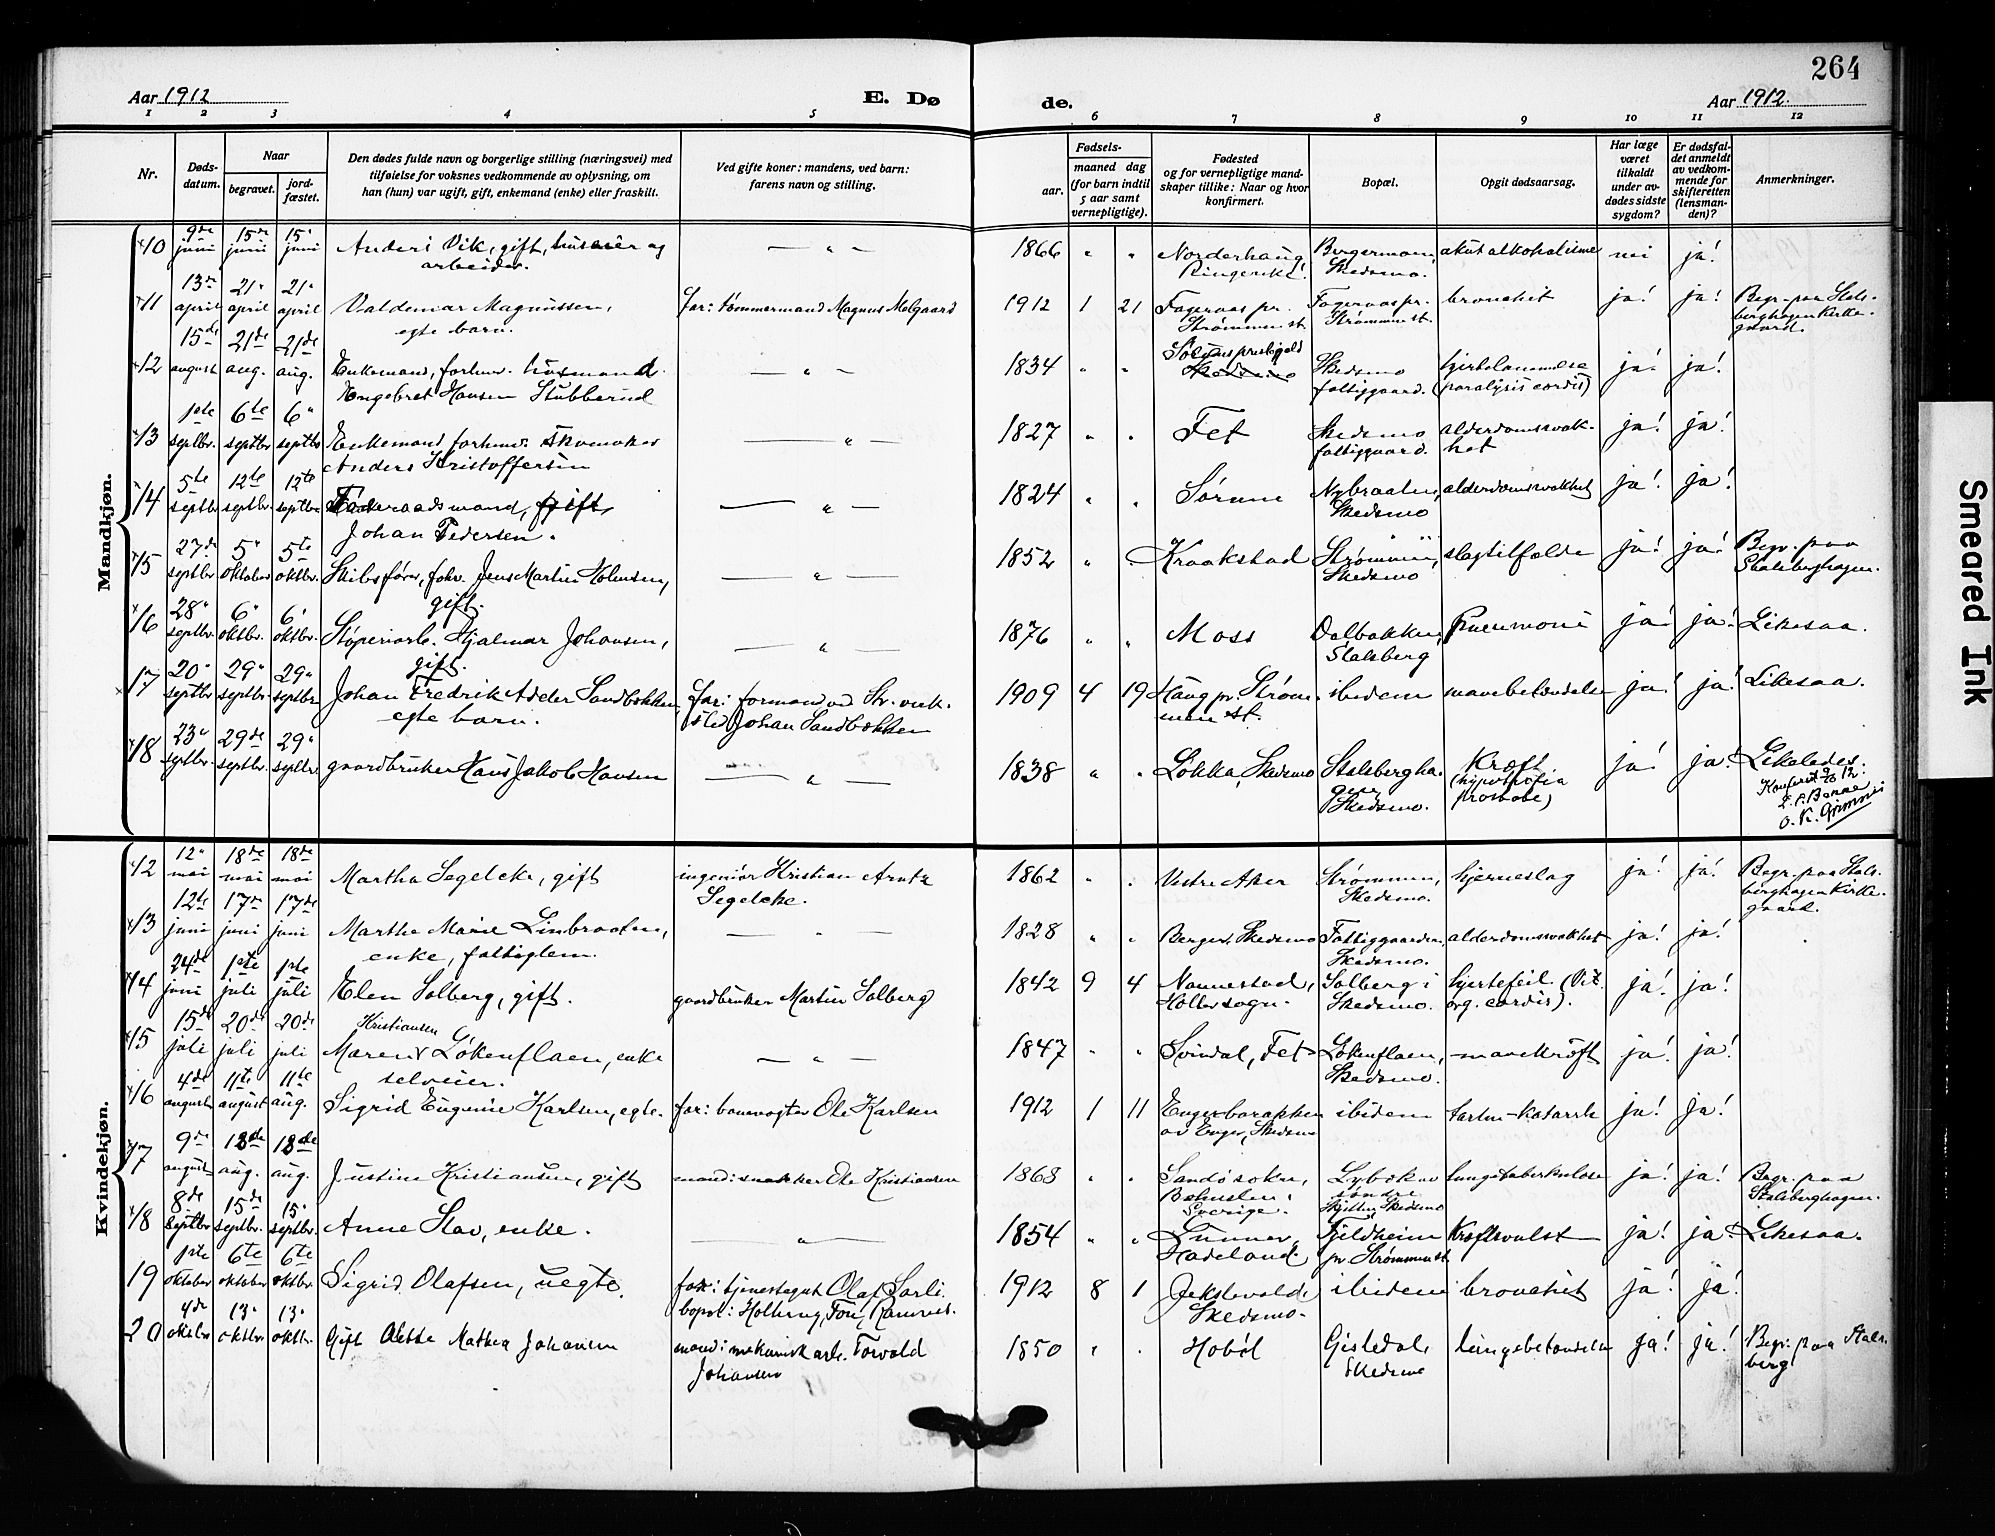 264
Aar 1912
E. Dø
de.
Aar 1912.
1 2 3 4 5 6 7 8 9 10 11 12
Nr.
Døds-
datum.
Naar
begravet.
jord-
fæstet.
Den dødes fulde navn og borgerlige stilling (næringsvei) med
tilføielse for voksnes vedkommende av oplysning, om
han (hun) var ugift, gift, enkemand (enke) eller fraskilt.
Ved gifte koner: mandens, ved barn:
farens navn og stilling.
Fødsels-
aar.
maaned dag
(for barn indtil
5 aar samt
vernepligtige).
Fødested
og for vernepligtige mand-
skaper tillike: Naar og hvor
konfirmert.
Bopæl.
Opgit dødsaarsag.
Har læge
været
tilkaldt
under av-
dødes sidste
sygdom?
Er dødsfal-
det anmeldt
av vedkom-
mende for
skifteretten
(lensman-
den)?
Anmerkninger.
Mandkjøn.
10 9de juni 15de juni 15" juni Anders Vik, gift, huseier og
arbeider. — " — 1866 " " Norderhaug,
Ringerike. Bergermoen,
Skedsmo. akut alkoholisme nei ja!
11 13de april 21" april 21" april Valdemar Magnussen,
egte barn. far: tømmermand Magnus Melgaard 1912 1 21 Fageraas pr.
Strømmen st. Fageraas pr.
Strømmen st. bronchit ja! ja! Begr. paa Stals-
berghagen kirke-
gaard.
12 15de august 21de aug. 21de aug. Enkemand, forhv. husmand
Engebret Hansen Stubberud — " — 1834 " " Sørums prestegjeld
Skedsmo Skedsmo
fattiggaard. hjertelammelse
(paralysis cordis) ja! ja!
13 1ste septbr. 6te septbr 6" septbr Enkemand forhenv. skomaker
Anders Kristoffersen — " — 1827 " " Fet Skedsmo
fattiggaard. alderdomssvak-
het ja! ja!
14 5te septbr 12te septbr. 12te septbr Føderaadsmand, gift,
Johan Pedersen. — " — 1824 " " Sørum Nybraaten,
Skedsmo alderdomssvakhet ja! ja!
15 27de septbr 5" oktober 5te oktbr. Skibsfører, fohv. Jens Martin Holmsen,
gift. — " — 1852 " " Kraakstad Strømmen,
Skedsmo slagtilfælde ja! ja! Begr. paa
Stalsberghagen.
16 28" septbr. 6" oktbr. 6" oktbr. Støperiarb. Hjalmar Johansen,
gift. — " — 1876 " " Moss Dalbakken,
Stalsberg Pneumoni ja! ja! Likesaa.
17 20" septbr 29" septbr 29" septbr Johan Fredrik Adler Sandbækken,
egte barn. far: formand ved Str. verk-
sted Johan Sandbækken 1909 4 19 Haug pr. Strøm-
men st. ibidem mavebetændelse ja! ja! Likesaa.
18 23" septbr. 29de septbr. 29" septbr. gaardbruker Hans Jakob Hansen — " — 1838 " " Løkka, Skedsmo Stalsbergha-
gen,
Skedsmo. Kræft
(hypertrofia
prostatae) ja! ja! Likeledes.
Konferert 9/10 12.
Kvindekjøn.
12 12" mai 18de mai 18de mai Martha Segelcke, gift ingeniør Kristian Arntz
Segelcke. 1862 " " Vestre Aker Strømmen,
Skedsmo. hjerneslag ja! ja! Begr. paa Stals-
berghagen kirke-
gaard.
13 12te juni 17de juni 17de juni Marthe Marie Linbraaten,
enke, fattiglem. — " — 1828 " " Berger, Skedsmo Fattiggaarden,
Skedsmo. alderdomssvakhet ja! ja!
14 24de juni 1ste juli 1ste juli Elen Solberg, gift. gaardbruker Martin Solberg 1842 9 4 Nannestad,
Holter sogn. Solberg i
Skedsmo. hjertefeil (Vit.
org. cordis). ja! ja!
15 15de juli 20de juli 20de juli Kristiansen
Maren Løkenflaen, enke
selveier. — " — 1847 " " Svindal, Fet Løkenflaen,
Skedsmo. mavekræft ja! ja!
16 4de august 11te august 11te aug. Sigrid Eugenie Karlsen, egte. far: banevogter Ole Karlsen 1912 1 11 Engerbarakken
av Enger, Skedsmo ibidem tarm-katarrh ja! ja!
17 9de august 18de aug. 18de aug. Justine Kristiansen, gift mand: snekker Ole Kristiansen 1868 " " Sandø sokn,
Bohuslen,
Sverige. Lybæk av
søndre
Skjetten, Skedsmo lungetuberkulose ja! ja! Begr. paa
Stalsberghagen.
18 8de septbr 15de septbr. 15" septbr. Anne Slav, enke. — " — 1854 " " Lunner,
Hadeland. Fjeldheim
pr Strømmen st. Kræftsvulst ja! ja! Likesaa.
19 1ste oktober 6te oktober 6te oktbr. Sigrid Olafsen, uegte. far: tjenestegut Olaf Sarli.
bopæl: Holterug, Fon, Ramnes. 1912 8 1 Jekslevold,
Skedsmo. ibidem bronchit ja! ja!
20 4de oktbr 13" oktbr. 13" oktbr. Gift Alette Mathea Johansen mand: mekanisk arb. Torvald
Johansen 1850 " " Hobøl Gisledal,
Skedsmo lungebetændelse ja! ja! Begr. paa Stals-
berg
Smeared Ink